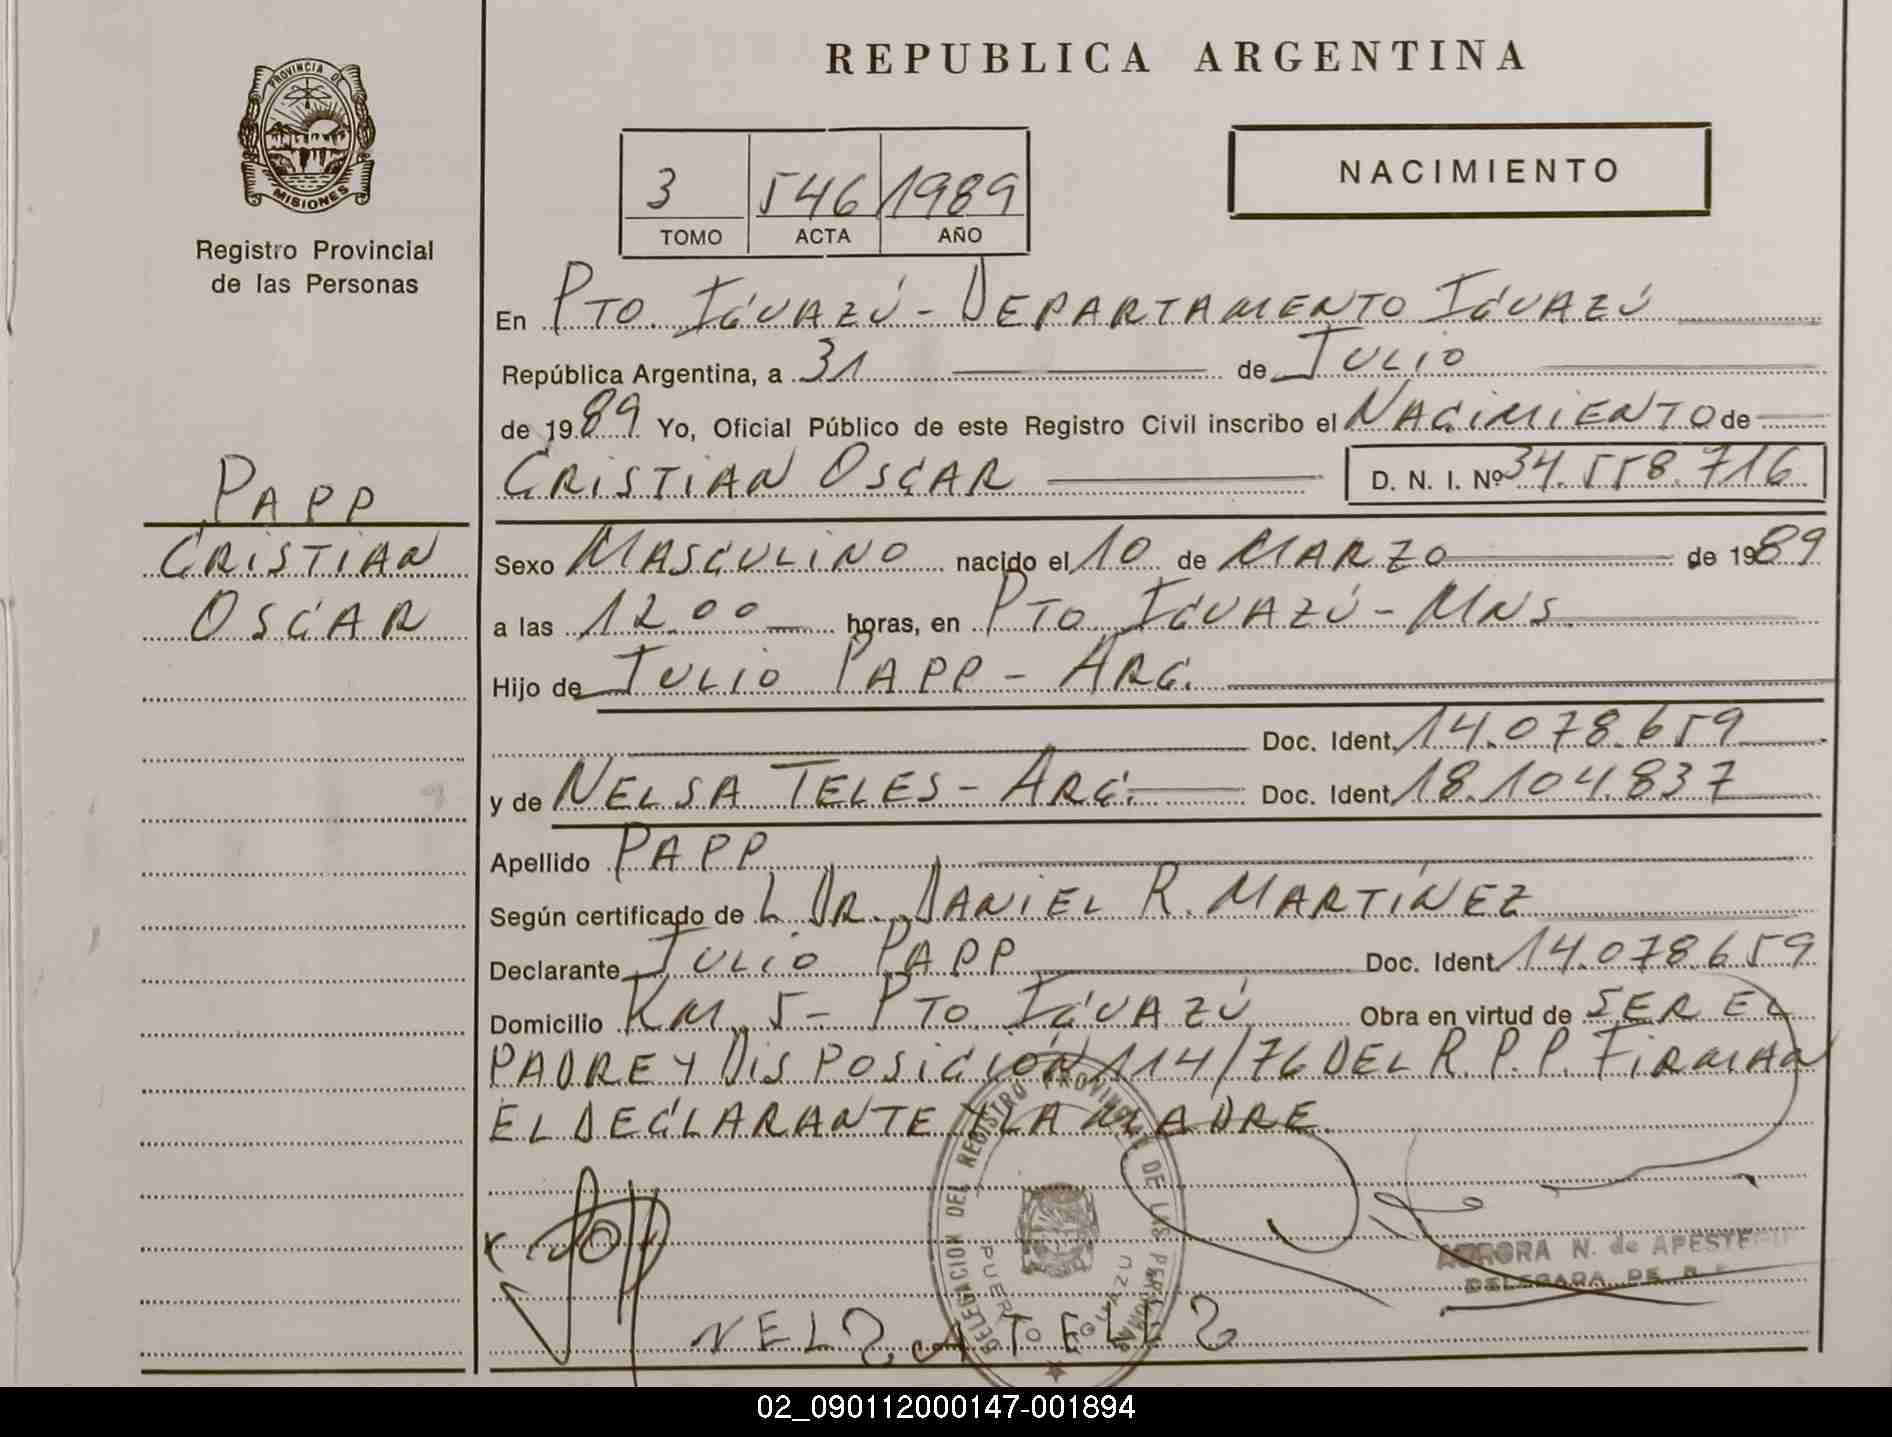 REPUBLICA ARGENTINA
PROVINCIA DE
MISIONES
Registro Provincial
de las Personas
3 546 1989
TOMO ACTA AÑO
NACIMIENTO
PAPP
CRISTIAN
OSCAR
En PTO. IGUAZÚ - DEPARTAMENTO IGUAZÚ
República Argentina, a 31 de JULIO
de 1989 Yo, Oficial Público de este Registro Civil inscribo el NACIMIENTO de
CRISTIAN OSCAR D. N. I. Nº 34.558.716
Sexo MASCULINO nacido el 10 de MARZO de 1989
a las 12.00 horas, en PTO IGUAZÚ - MNS.
Hijo de JULIO PAPP - ARG.
Doc. Ident. 14.078.659
y de NELSA TELES - ARG. Doc. Ident. 18.104.837
Apellido PAPP
Según certificado de L DR. DANIEL R. MARTÍNEZ
Declarante JULIO PAPP Doc. Ident. 14.078.659
Domicilio KM 5 - PTO IGUAZÚ Obra en virtud de SER EL
PADRE Y DISPOSICIÓN 114/76 DEL R.P.P. FIRMAN
EL DECLARANTE Y LA MADRE.
DELEGACION DEL REGISTRO PROVINCIAL DE LAS PERSONAS
PUERTO IGUAZU
AURORA N. de
DELEGADA DE
NELSA TELES
02_090112000147-001894